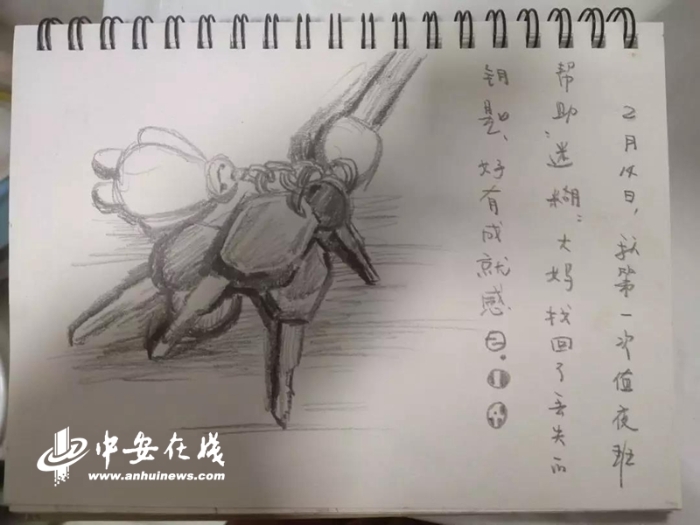 2月14日,我第一次值夜班
帮助"迷糊"大妈找回了丢失的
钥匙、好有成就感
中安在线
www.anhuinews.com